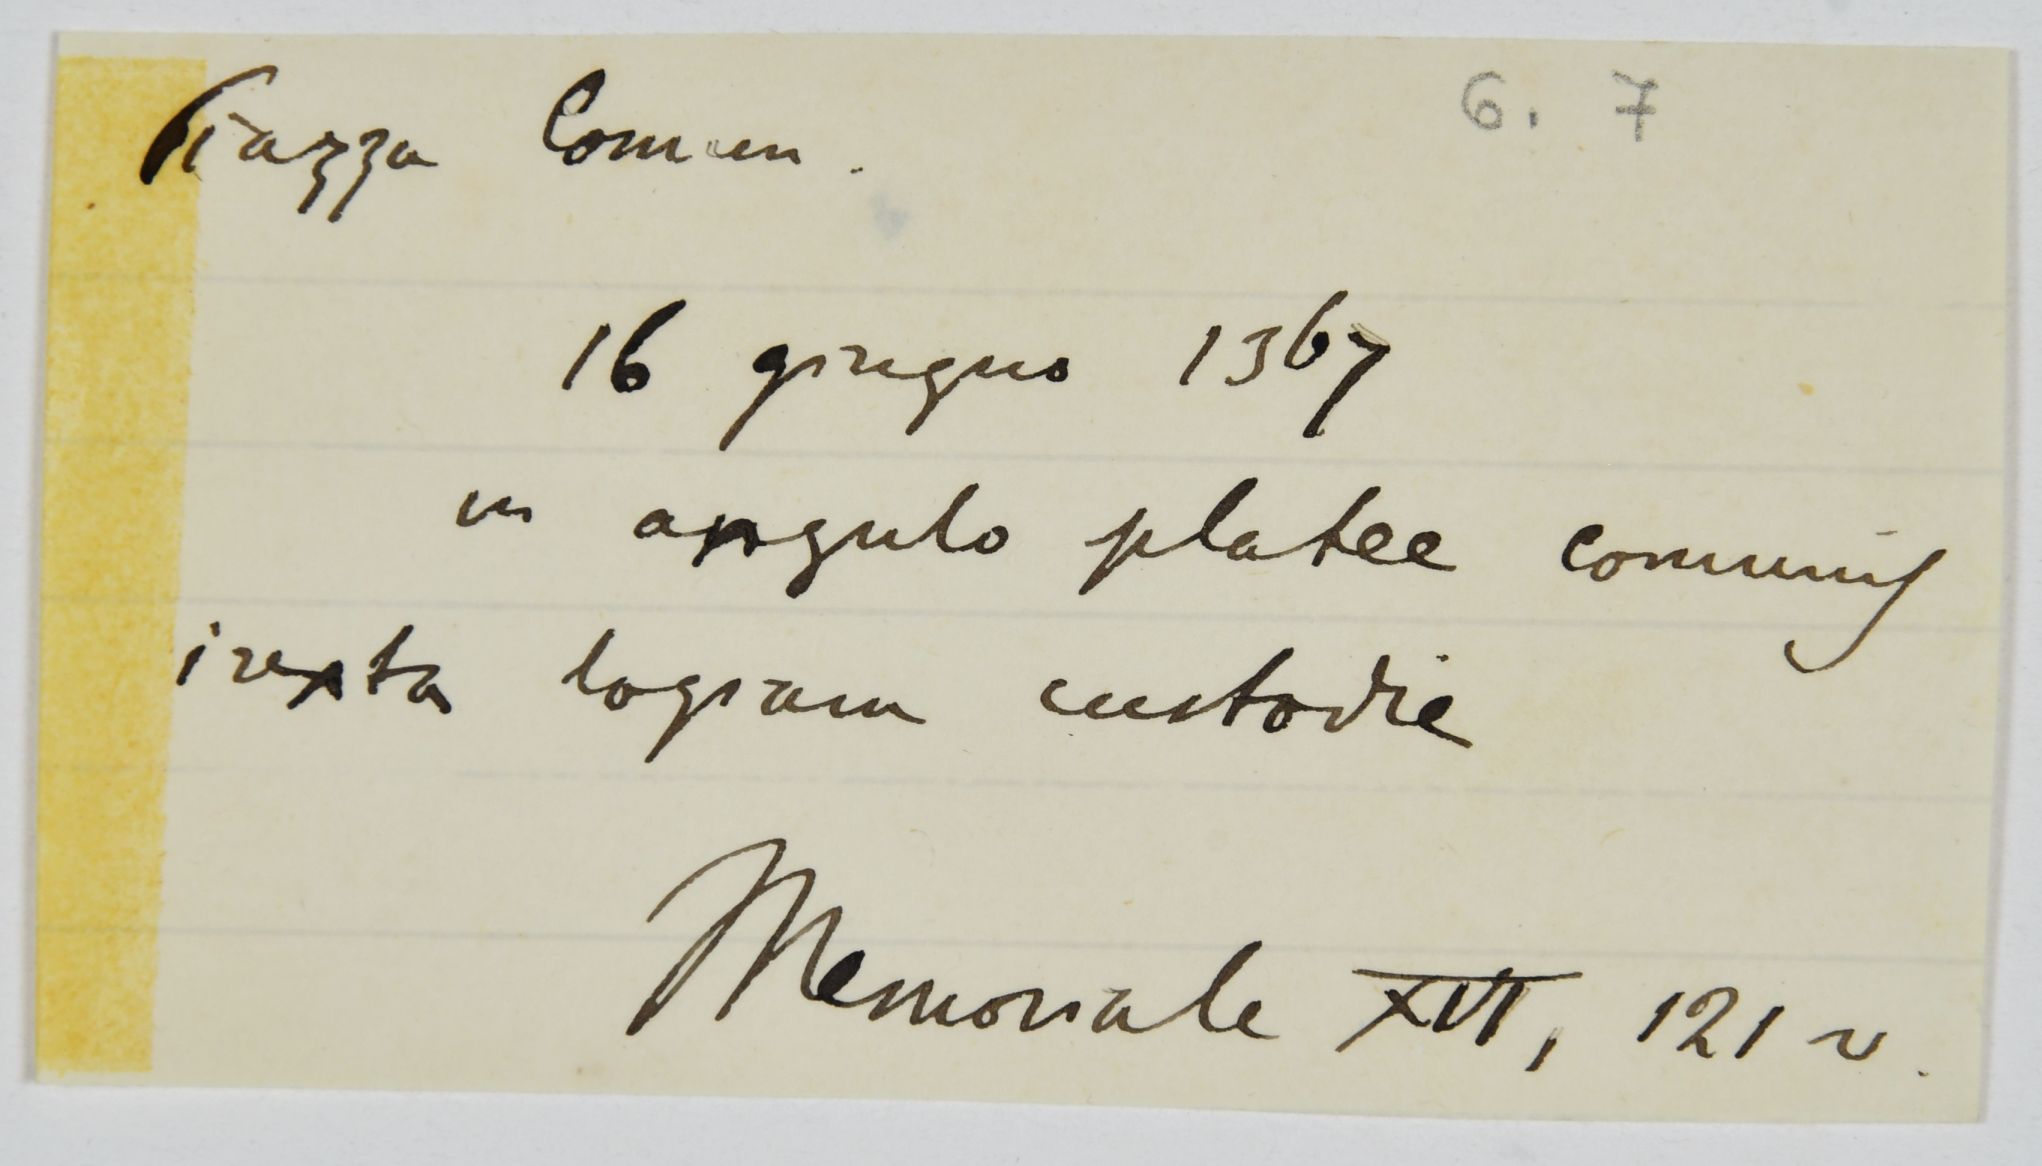 Piazza Comun. 6. 7
16 giugno 1367
in angulo platee comunis
iuxta logiam custodie
Memoriale XVI, 121 v.